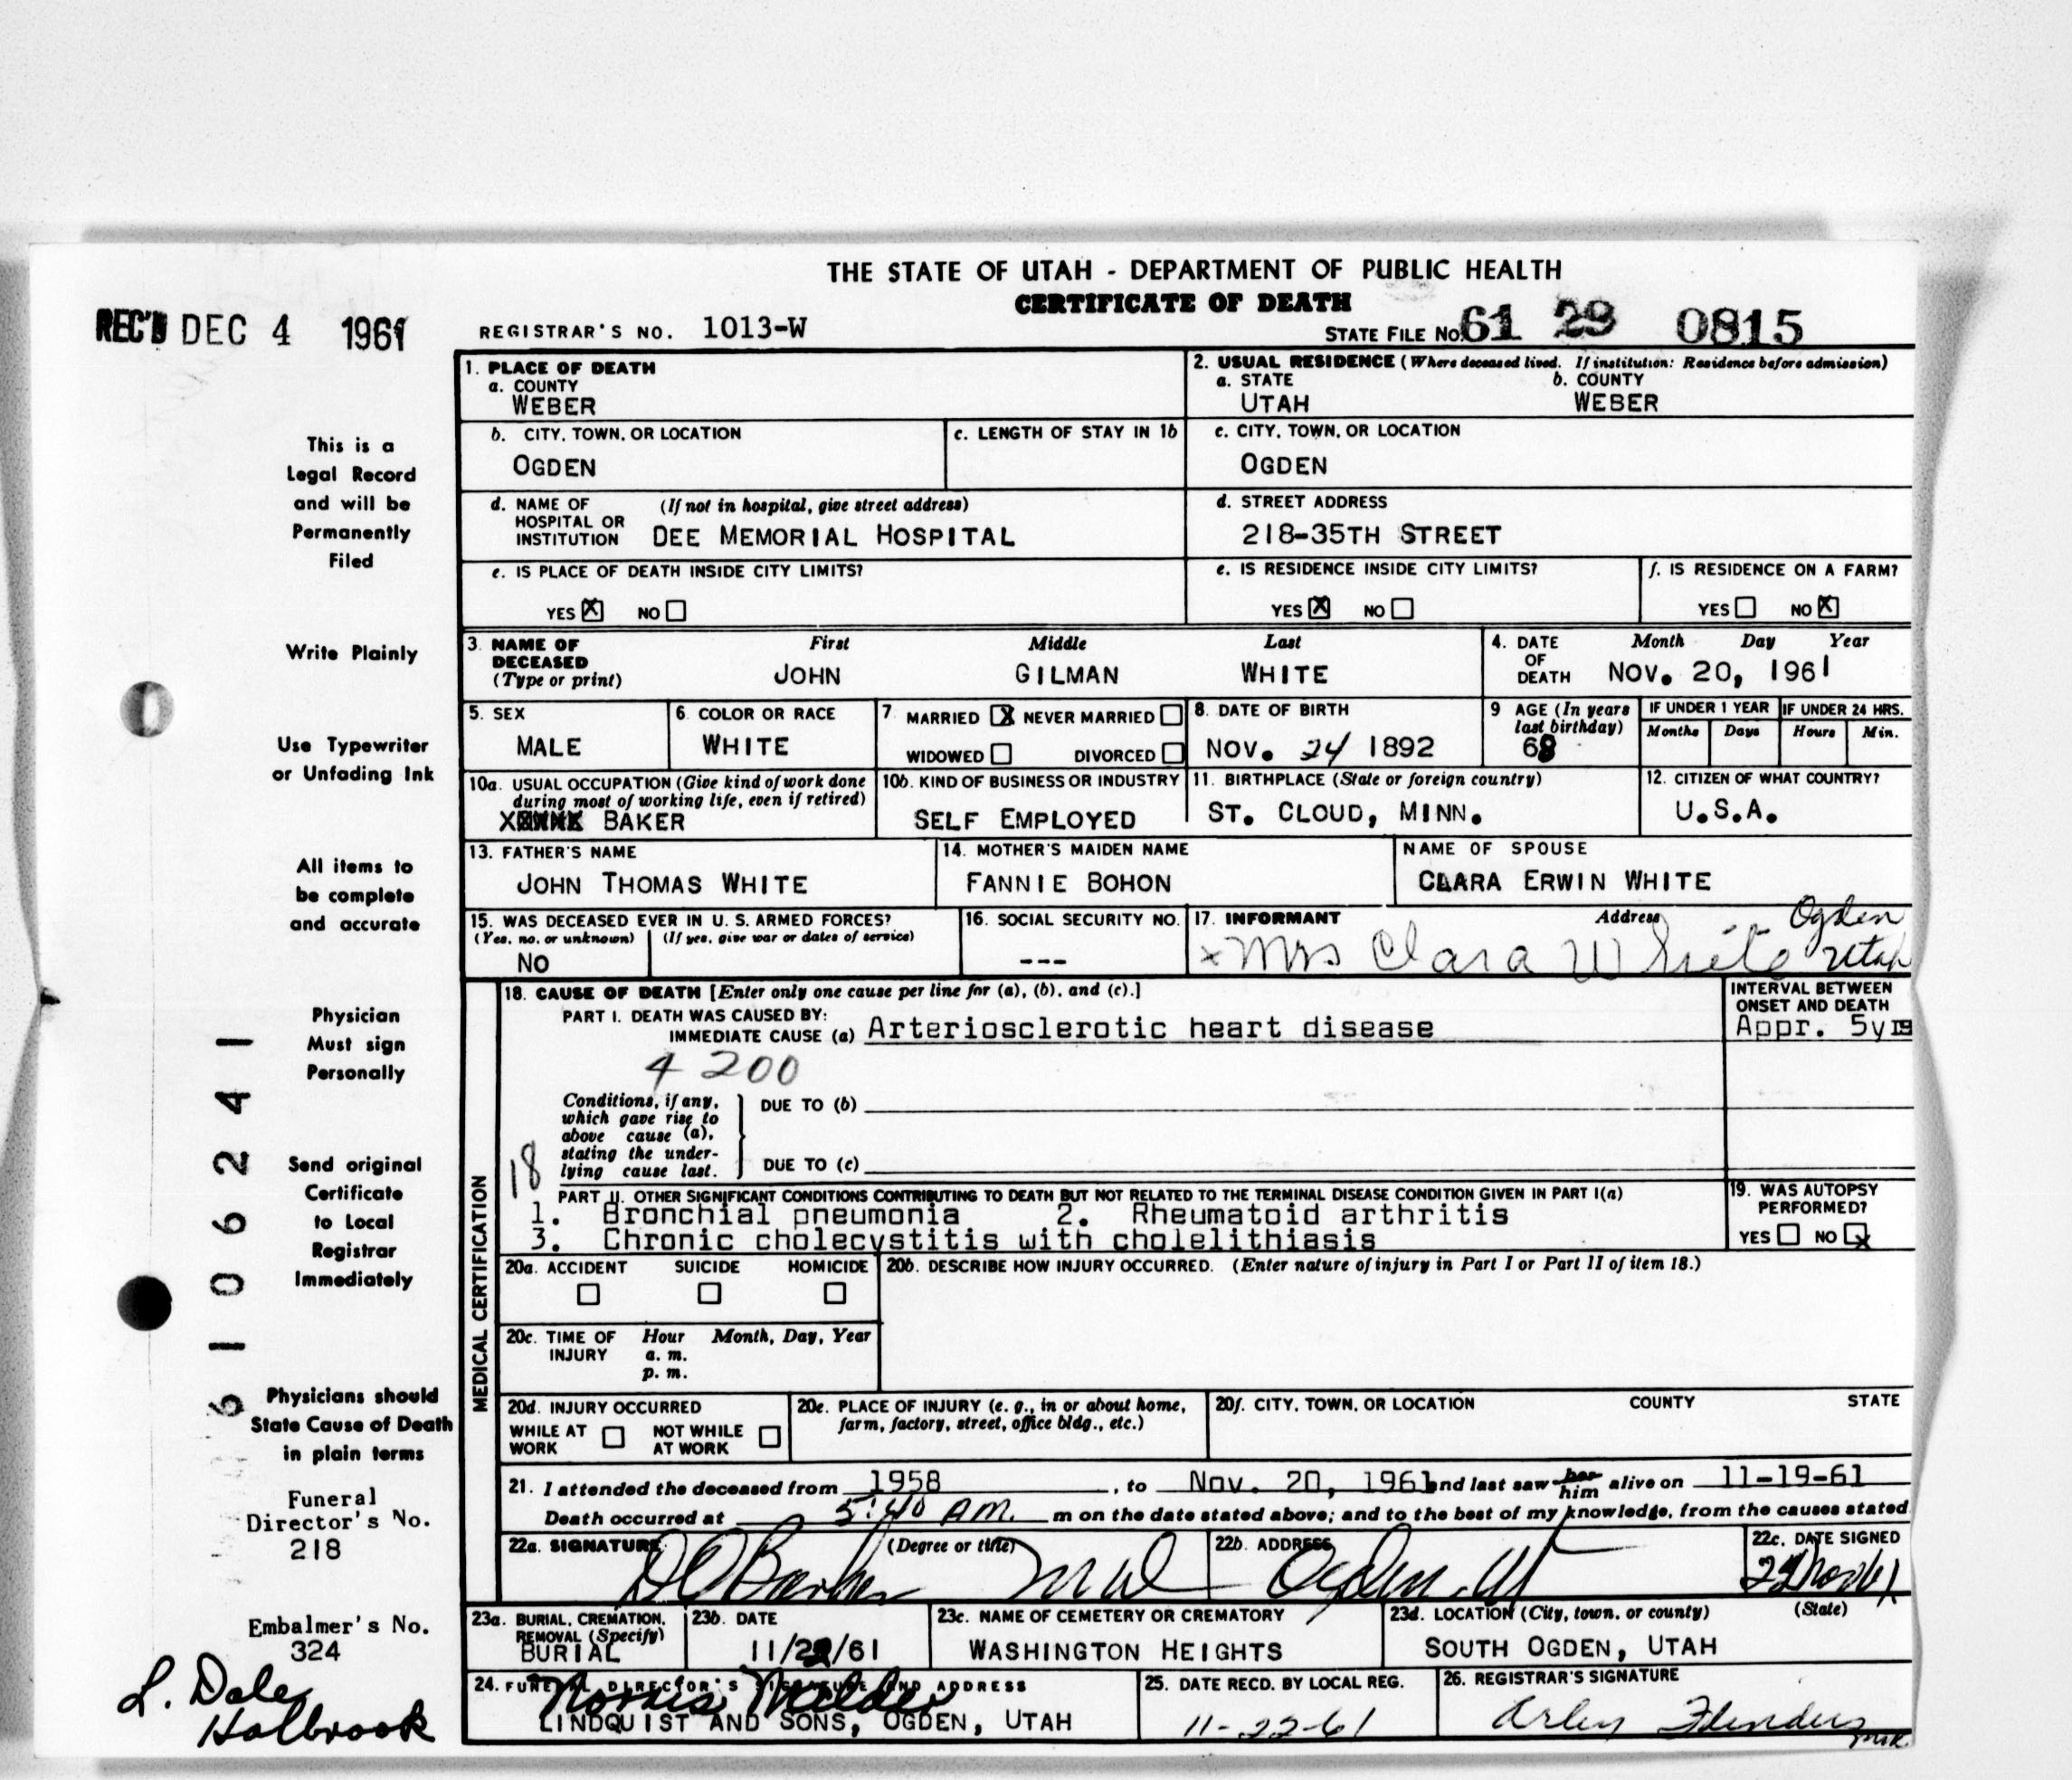 THE STATE OF UTAH - DEPARTMENT OF PUBLIC HEALTH
CERTIFICATE OF DEATH
REC'D DEC 4 1961
REGISTRAR'S NO. 1013-W
STATE FILE No. 61 29 0815
1. PLACE OF DEATH
a. COUNTY
WEBER
2. USUAL RESIDENCE (Where deceased lived. If institution: Residence before admission)
a. STATE b. COUNTY
UTAH WEBER
b. CITY, TOWN, OR LOCATION
OGDEN
c. LENGTH OF STAY IN 1b
c. CITY, TOWN, OR LOCATION
OGDEN
d. NAME OF HOSPITAL OR INSTITUTION (If not in hospital, give street address)
DEE MEMORIAL HOSPITAL
d. STREET ADDRESS
218-35TH STREET
e. IS PLACE OF DEATH INSIDE CITY LIMITS?
YES X NO
e. IS RESIDENCE INSIDE CITY LIMITS?
YES X NO
f. IS RESIDENCE ON A FARM?
YES NO X
3. NAME OF DECEASED (Type or print)
First Middle Last
JOHN GILMAN WHITE
4. DATE OF DEATH
Month Day Year
NOV. 20, 1961
5. SEX
MALE
6. COLOR OR RACE
WHITE
7 MARRIED X NEVER MARRIED
WIDOWED DIVORCED
8. DATE OF BIRTH
NOV. 24 1892
9 AGE (In years last birthday)
68
IF UNDER 1 YEAR IF UNDER 24 HRS.
Months Days Hours Min.
10a. USUAL OCCUPATION (Give kind of work done during most of working life, even if retired)
BAKER
10b. KIND OF BUSINESS OR INDUSTRY
SELF EMPLOYED
11. BIRTHPLACE (State or foreign country)
ST. CLOUD, MINN.
12. CITIZEN OF WHAT COUNTRY?
U.S.A.
13. FATHER'S NAME
JOHN THOMAS WHITE
14. MOTHER'S MAIDEN NAME
FANNIE BOHON
NAME OF SPOUSE
CLARA ERWIN WHITE
15. WAS DECEASED EVER IN U. S. ARMED FORCES?
(Yes, no, or unknown) (If yes, give war or dates of service)
NO
16. SOCIAL SECURITY NO.
---
17. INFORMANT Address
x Mrs Clara White Ogden Utah
MEDICAL CERTIFICATION
18. CAUSE OF DEATH [Enter only one cause per line for (a), (b), and (c).]
PART I. DEATH WAS CAUSED BY:
IMMEDIATE CAUSE (a) Arteriosclerotic heart disease
INTERVAL BETWEEN ONSET AND DEATH
Appr. 5yrs
4 200
Conditions, if any, which gave rise to above cause (a), stating the underlying cause last.
DUE TO (b)
DUE TO (c)
18
PART II. OTHER SIGNIFICANT CONDITIONS CONTRIBUTING TO DEATH BUT NOT RELATED TO THE TERMINAL DISEASE CONDITION GIVEN IN PART I(a)
1. Bronchial pneumonia 2. Rheumatoid arthritis
3. Chronic cholecystitis with cholelithiasis
19. WAS AUTOPSY PERFORMED?
YES NO X
20a. ACCIDENT SUICIDE HOMICIDE
20b. DESCRIBE HOW INJURY OCCURRED. (Enter nature of injury in Part I or Part II of item 18.)
20c. TIME OF INJURY Hour Month, Day, Year
a. m.
p. m.
20d. INJURY OCCURRED
WHILE AT WORK NOT WHILE AT WORK
20e. PLACE OF INJURY (e. g., in or about home, farm, factory, street, office bldg., etc.)
20f. CITY, TOWN, OR LOCATION COUNTY STATE
21. I attended the deceased from 1958, to Nov. 20, 1961 and last saw her him alive on 11-19-61
Death occurred at 5:40 AM. m on the date stated above; and to the best of my knowledge, from the causes stated
22a. SIGNATURE (Degree or title)
22b. ADDRESS
Ogden, Ut
22c. DATE SIGNED
22 Nov 61
23a. BURIAL, CREMATION, REMOVAL (Specify)
BURIAL
23b. DATE
11/22/61
23c. NAME OF CEMETERY OR CREMATORY
WASHINGTON HEIGHTS
23d. LOCATION (City, town, or county) (State)
SOUTH OGDEN, UTAH
24. FUNERAL DIRECTOR'S SIGNATURE AND ADDRESS
LINDQUIST AND SONS, OGDEN, UTAH
25. DATE RECD. BY LOCAL REG.
11-22-61
26. REGISTRAR'S SIGNATURE
This is a
Legal Record
and will be
Permanently
Filed
Write Plainly
Use Typewriter
or Unfading Ink
All items to
be complete
and accurate
Physician
Must sign
Personally
Send original
Certificate
to Local
Registrar
Immediately
Physicians should
State Cause of Death
in plain terms
Funeral
Director's No.
218
Embalmer's No.
324
L. Dale
Holbrook
61 06241